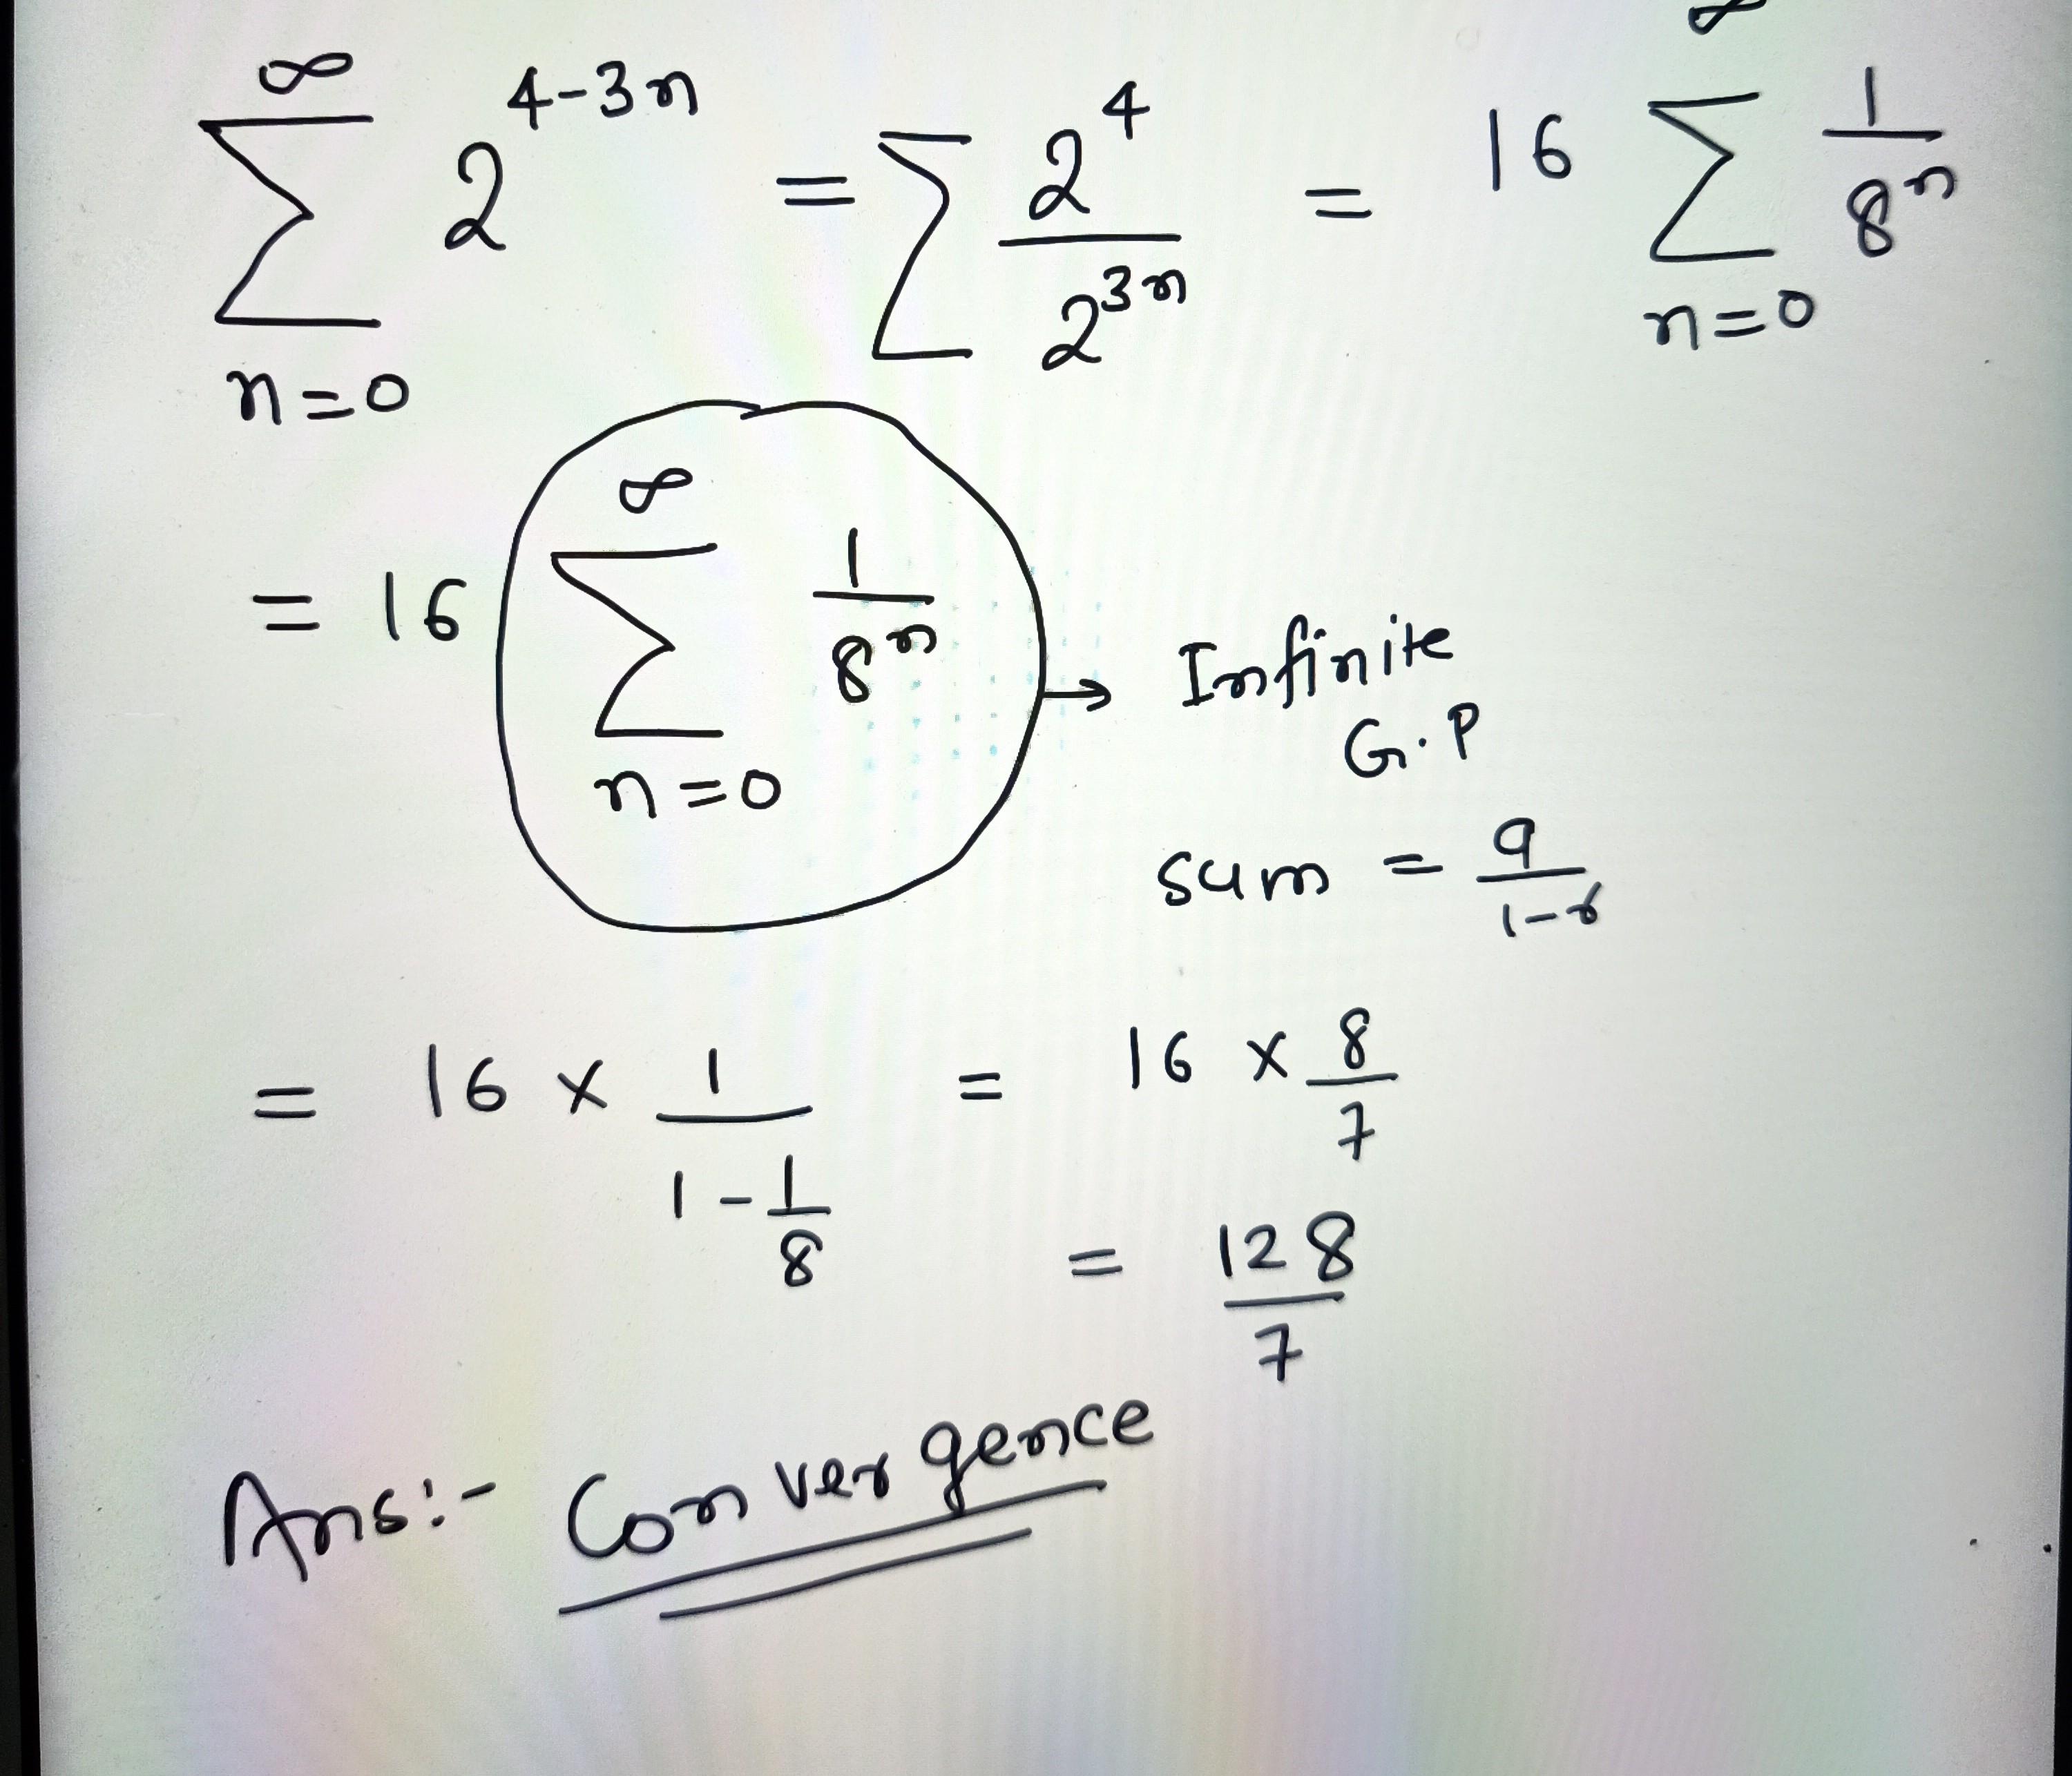 ∞ ∑ n=0 2^{4-3n} = ∑ 2^4 / 2^{3n} = 16 ∞ ∑ n=0 1 / 8^n
= 16 ∞ ∑ n=0 1 / 8^n → Infinite
G.P
sum = a / 1-r
= 16 × 1 / 1 - 1/8 = 16 × 8/7
= 128 / 7
Ans:- Convergence